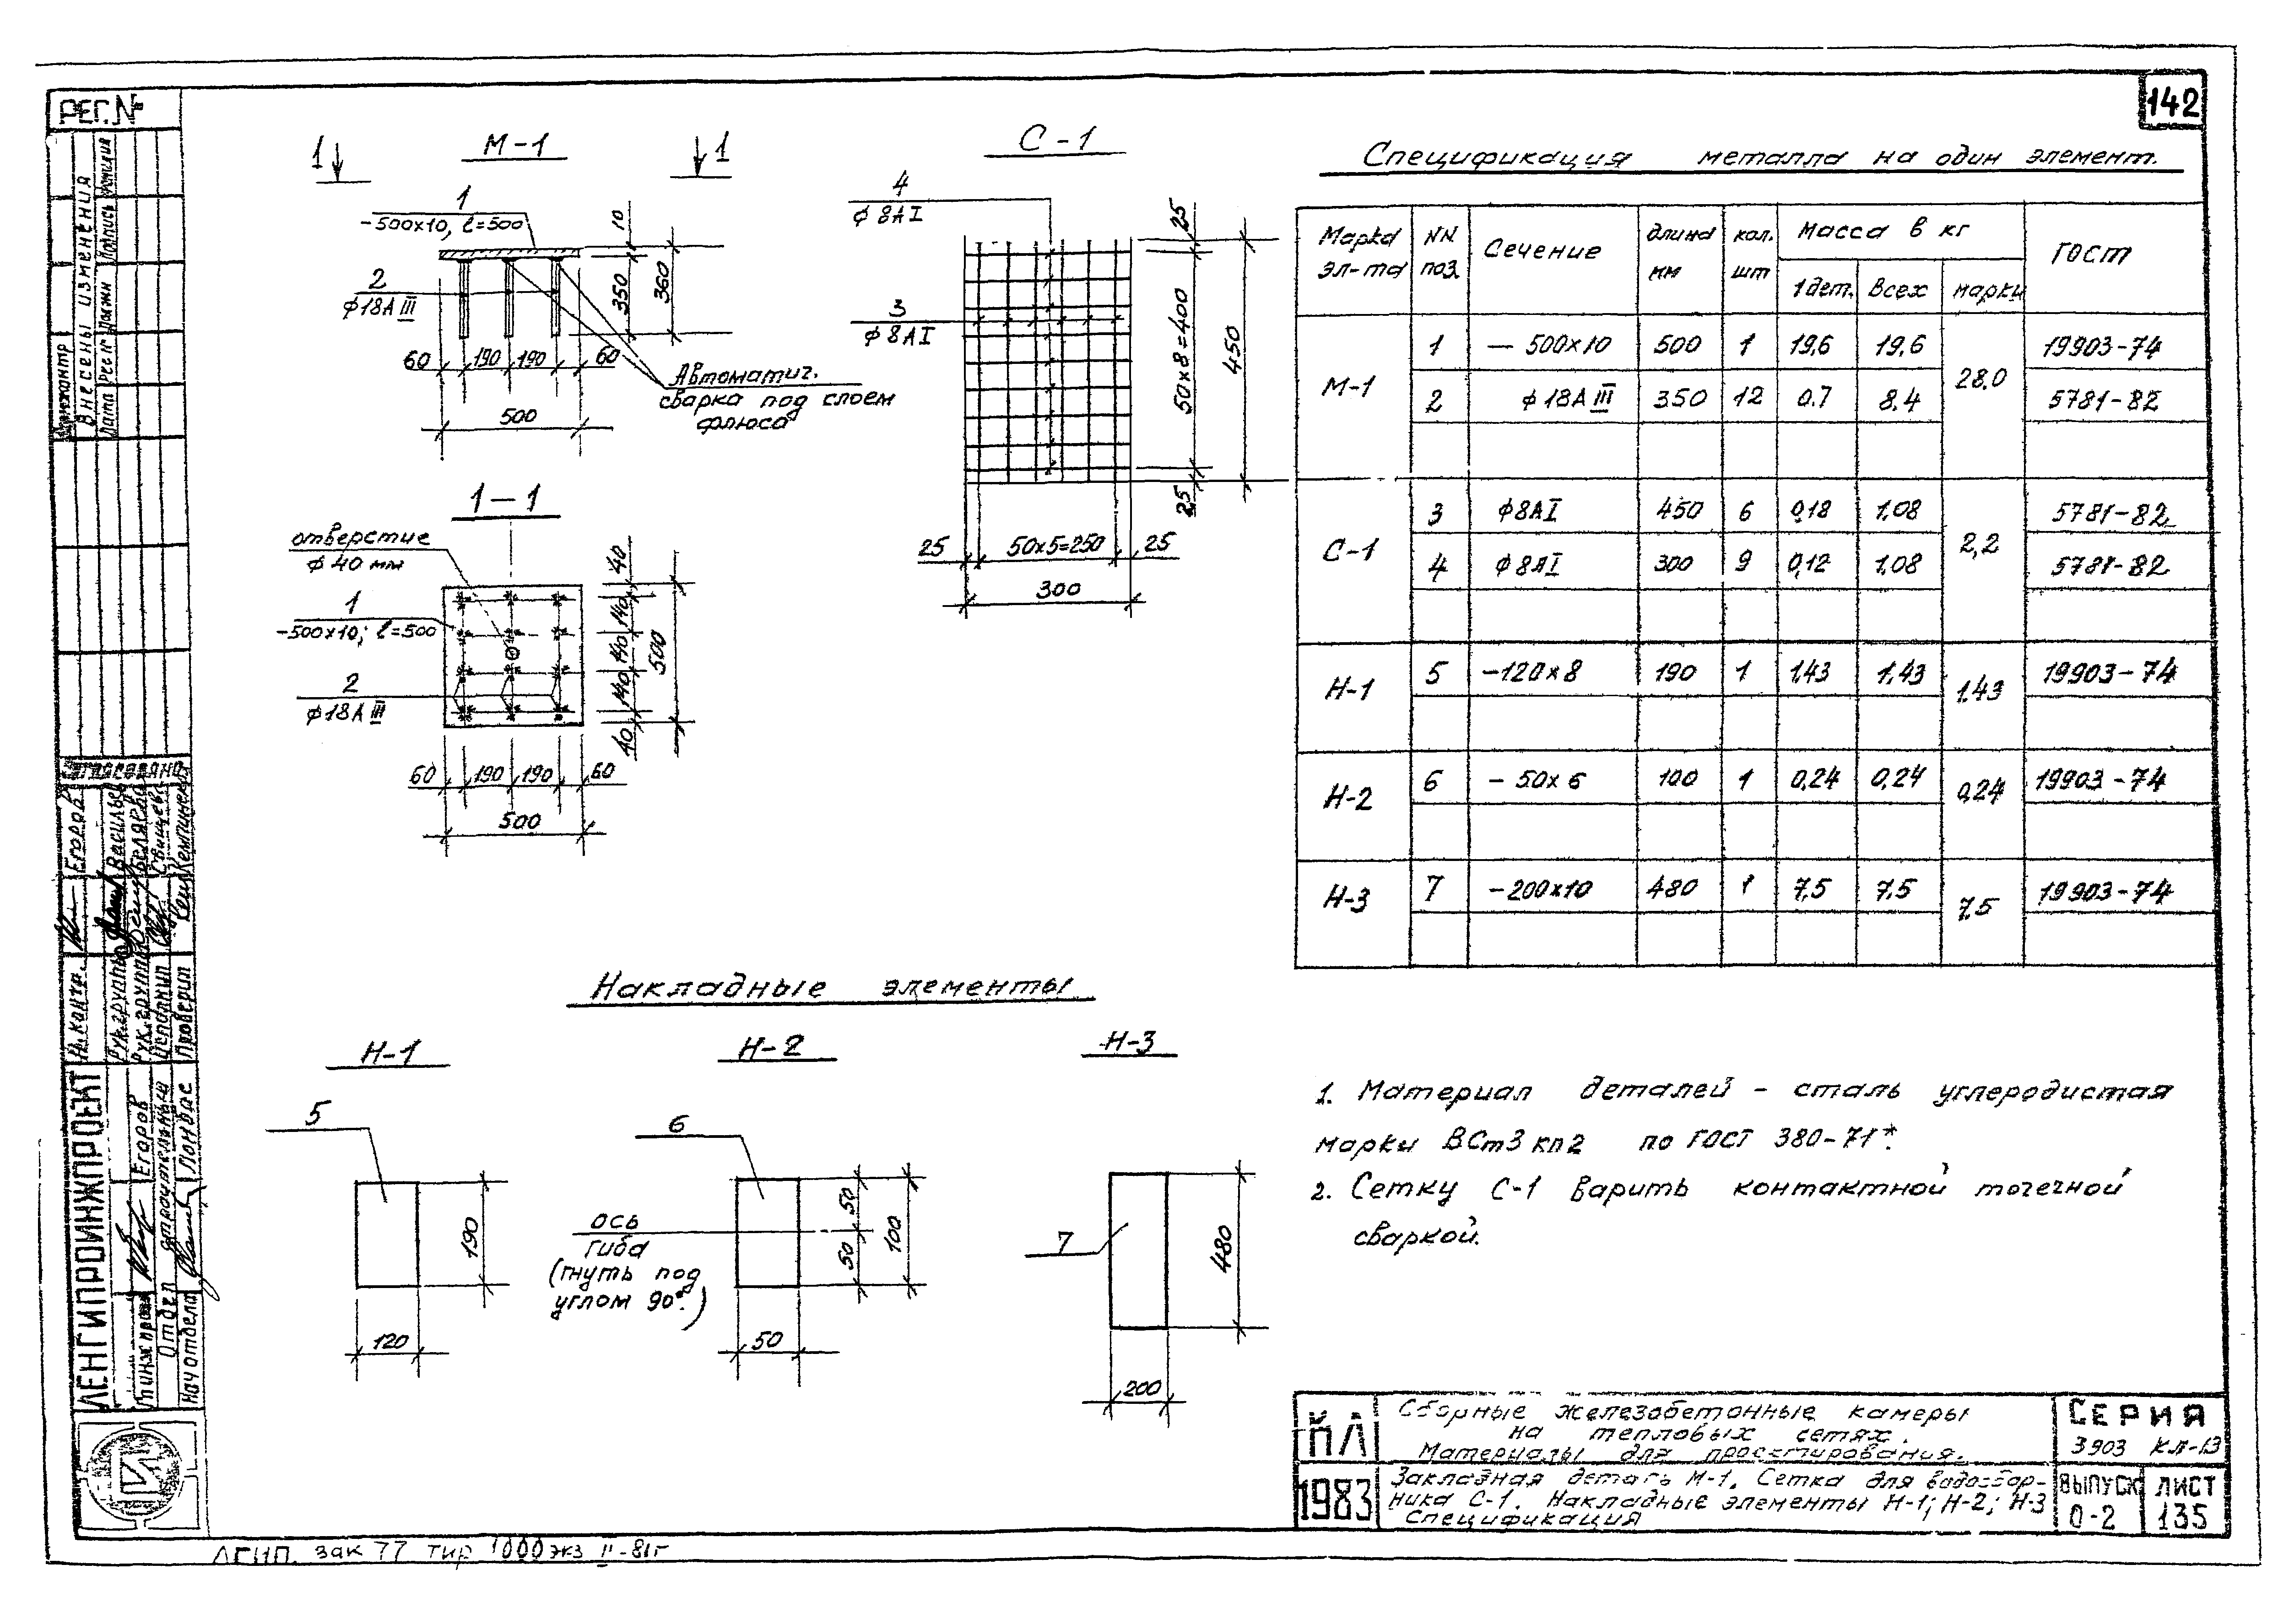 142
РЕГ. №
Внесены изменения
Дата Рег.№ Должн Подпись Фамилия
Согласовано
Н. контр. Егоров
Рук.группы Васильев
Рук.группы Беляева
Исполнил Свищева
Проверил
ЛЕНГИПРОИНЖПРОЕКТ
Егоров
Отдел строительный
Нач отдела Лонвас
1 М-1 1
1
-500х10, ℓ=500
2
ф18АIII
10
350
360
60 190 190 60
500
Автоматич.
сварка под слоем
флюса
1-1
отверстие
ф40 мм
1
-500х10; ℓ=500
2
ф18АIII
40
140
140
140
40
500
60 190 190 60
500
С-1
4
ф8АI
3
ф8АI
25
50х8=400
25
450
25 50х5=250 25
300
Спецификация металла на один элемент.
Марка эл-та NN поз. Сечение длина мм кол. шт Масса в кг ГОСТ
1дет. Всех марки
М-1 1 — 500х10 500 1 19,6 19,6 28,0 19903-74
2 ф18АIII 350 12 0.7 8.4 5781-82
С-1 3 ф8АI 450 6 0,18 1.08 2,2 5781-82
4 ф8АI 300 9 0,12 1.08 5781-82
Н-1 5 -120х8 190 1 1,43 1,43 1,43 19903-74
Н-2 6 - 50х6 100 1 0,24 0,24 0,24 19903-74
Н-3 7 -200х10 480 1 7,5 7,5 7,5 19903-74
Накладные элементы
Н-1
5
190
120
Н-2
6
ось
гиба
(гнуть под
углом 90°.)
50
50
100
50
Н-3
7
480
200
1. Материал деталей - сталь углеродистая
марки ВСт3кп2 по ГОСТ 380-71*.
2. Сетку С-1 варить контактной точечной
сваркой.
1983
Сборные железобетонные камеры
на тепловых сетях.
Материалы для проектирования.
Закладная деталь М-1. Сетка для водосбор-
ника С-1. Накладные элементы Н-1; Н-2; Н-3
Спецификация
СЕРИЯ
3903 КЛ-13
ВЫПУСК
0-2
ЛИСТ
135
ЛГИП. зак 77 тир 1000экз II-81г